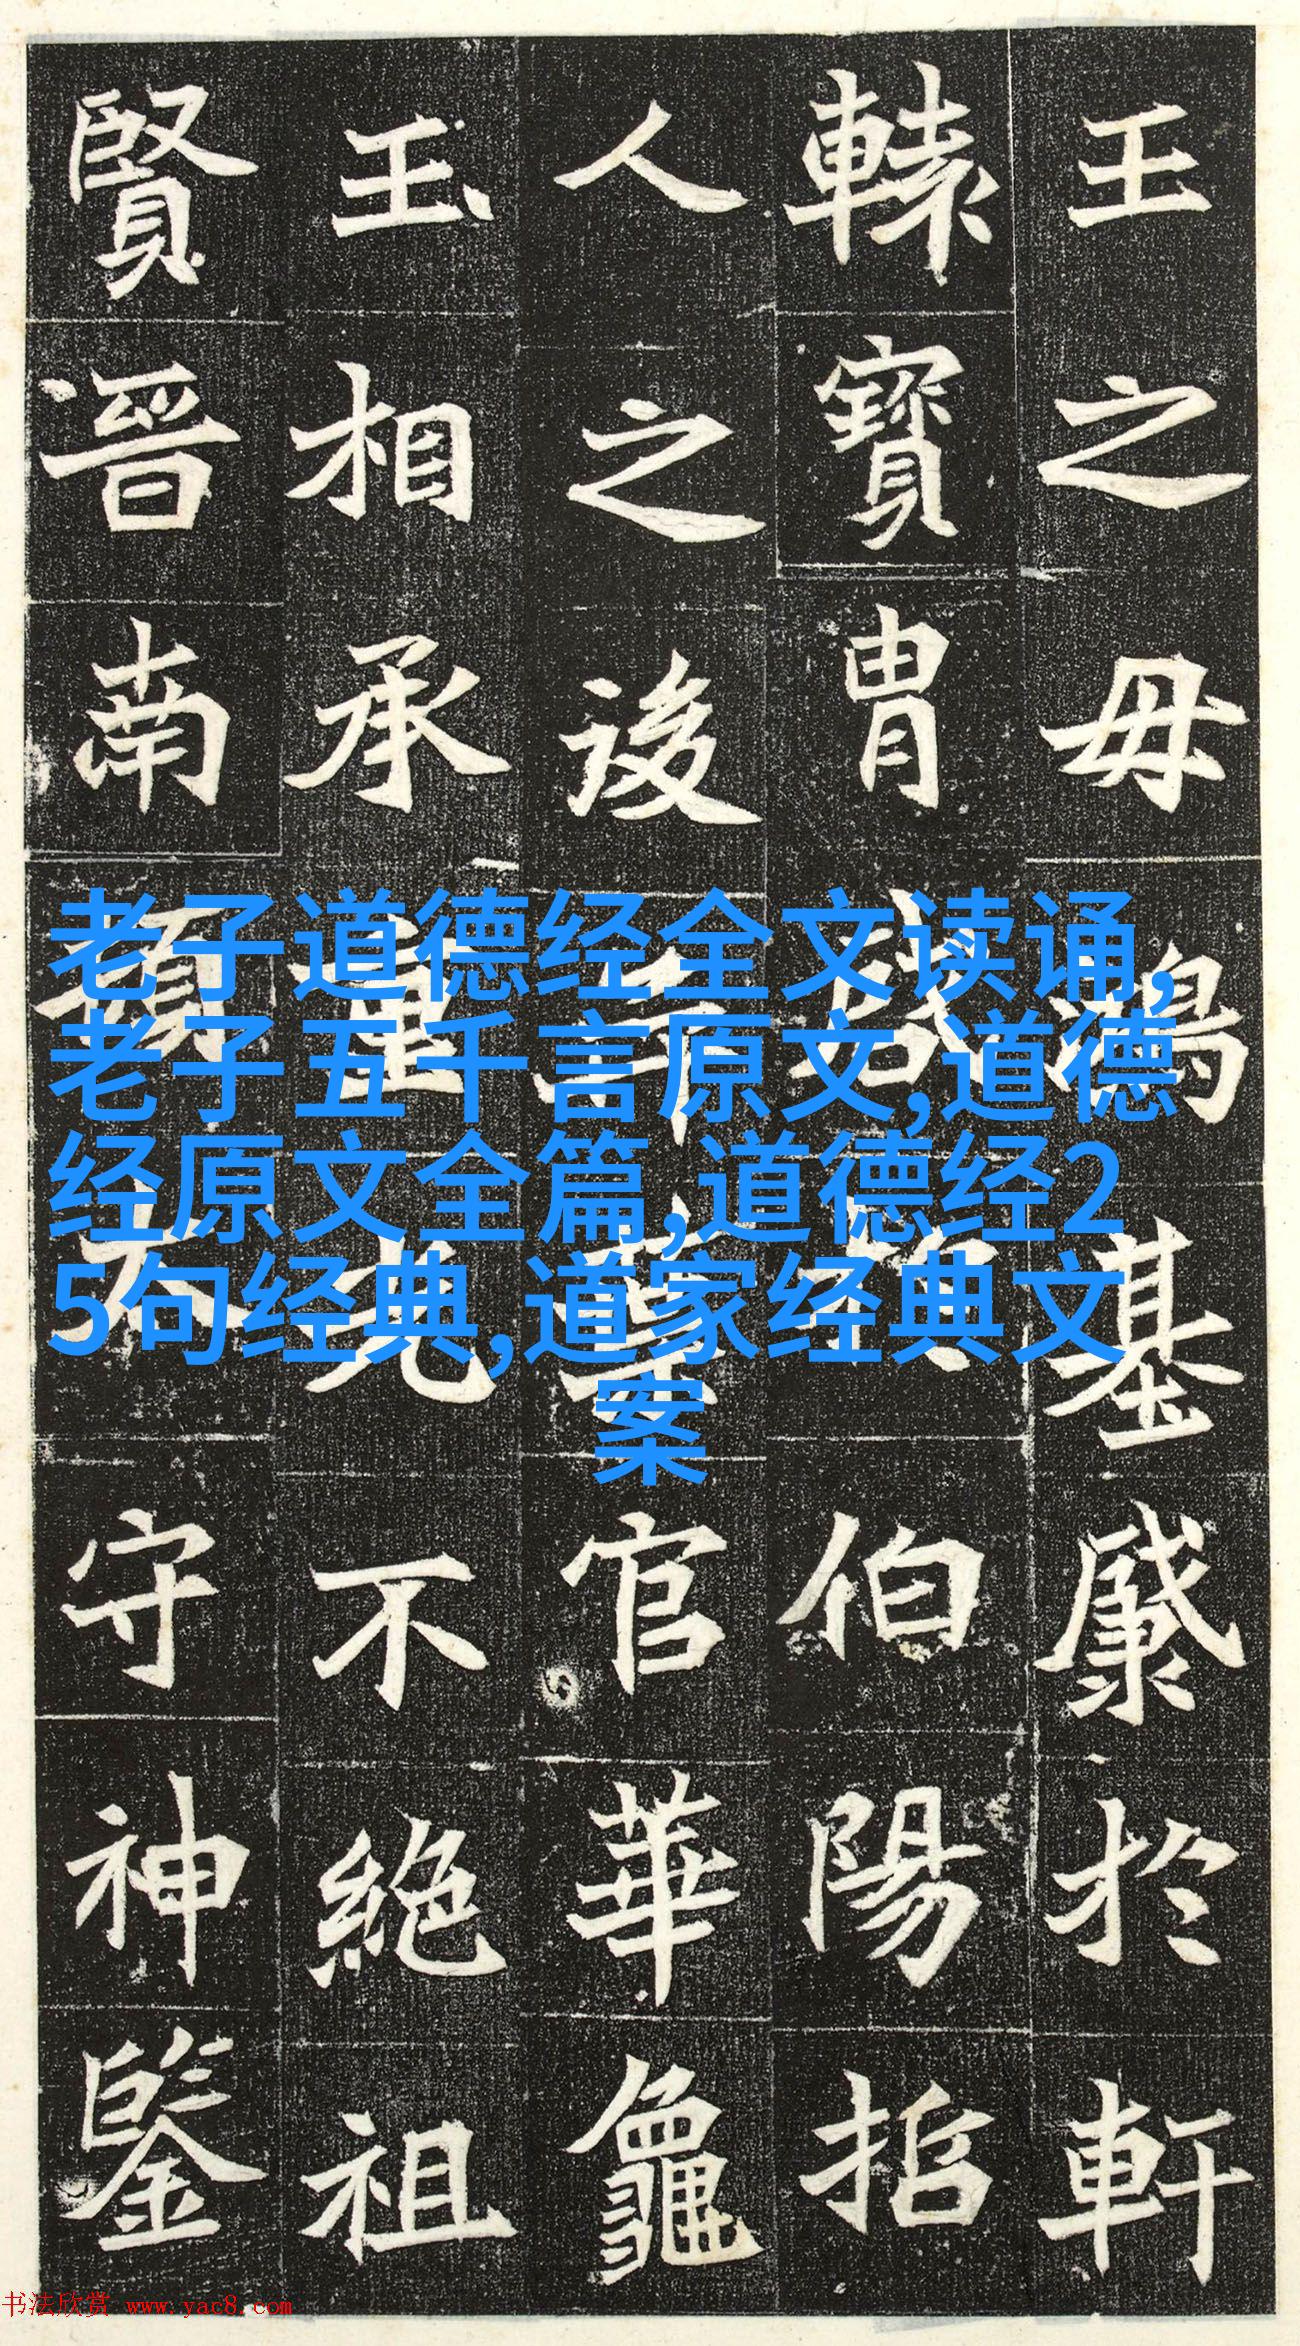 王之毋鴻基於軒
轅寶胄伯陽招
人之後官華龕
玉相承重光不絶祖
賢晉南頓太守神鑒
老子道德经全文读诵,
老子五千言原文,道德
经原文全篇,道德经2
5句经典,道家经典文
案
书法欣赏 www.yac8.com